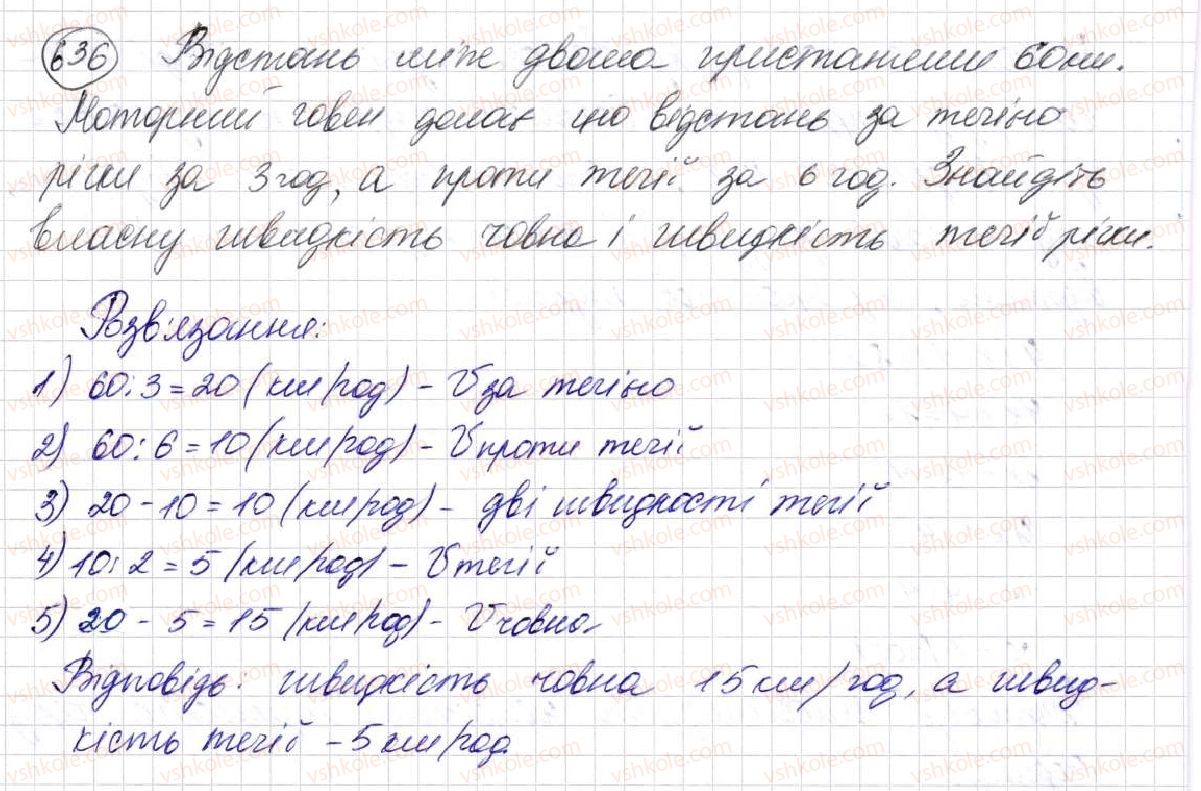 636 Відстань між двома пристанями 60км.
Моторний човен долає цю відстань за течією
річки за 3 год, а проти течії за 6 год. Знайдіть
власну швидкість човна і швидкість течії річки.
Розв'язання:
1) 60:3=20 (км/год) - V за течією
2) 60:6=10 (км/год) - V проти течії
3) 20-10=10 (км/год) - дві швидкості течії
4) 10:2=5 (км/год) - V течії
5) 20-5=15 (км/год) - V човна
Відповідь: швидкість човна 15 км/год, а швид-
кість течії - 5 км/год.